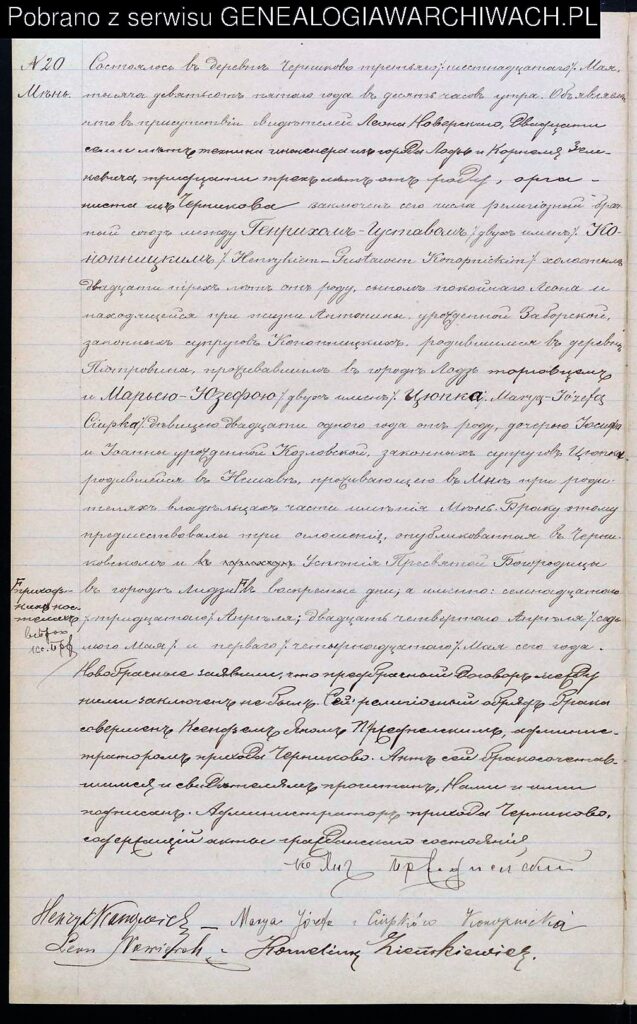 Pobrano z serwisu GENEALOGIAWARCHIWACH.PL
N 20
Мѣнь.
Состоялось въ деревнѣ Черниково третьяго /: шестнадцатаго / Мая,
тысяча девятьсотъ пятаго года въ десять часовъ утра. Объявляемъ
что въ присутствіи свидѣтелей Леона Новерскаго, двадцати
семи лѣтъ техника инженера изъ города Лодзь и Корнелія Зен-
кевича, тридцати трехъ лѣтъ отъ роду, орга-
ниста изъ Черникова заключенъ сего числа религіозный брач-
ный союзъ между Генрихомъ-Густавомъ / двухъ именъ / Ко-
нопницкимъ / Henrykiem-Gustawem Konopnickim / холостымъ
двадцати трехъ лѣтъ отъ роду, сыномъ покойнаго Леона и
находящейся при жизни Антонины, урожденной Заборской,
законныхъ супруговъ Конопницкихъ, родившимся въ деревнѣ
проживавшимъ въ городѣ Лодзь торговцемъ
и Марьею-Юзефою / двухъ именъ / Цюпка / Marya-Józefa
Ciupka / дѣвицею двадцати одного года отъ роду, дочерью Іосифа
и Іоанны урожденной Козловской, законныхъ супруговъ Цюпка,
родившейся въ проживающею въ Мнѣ при роди-
теляхъ владѣльцахъ части имѣнія Мѣнь. Браку этому
предшествовали три оглашенія, опубликованныя въ Черни-
ковскомъ и въ Успенія Пресвятой Богородицы
въ городѣ Лодзи въ воскресные дни, а именно: семнадцатаго
/ тридцатаго / Апрѣля; двадцать четвертаго Апрѣля / седь-
мого Мая / и перваго / четырнадцатаго / Мая сего года.
Новобрачные заявили, что предбрачный договоръ между
ними заключенъ не былъ. Сей религіозный обрядъ брака
совершенъ Ксендзомъ Яномъ админис-
траторомъ прихода Черниково. Актъ сей бракосочетав-
шимся и свидѣтелямъ прочитанъ, Нами и ими
подписанъ. Администраторъ прихода Черниково,
содержащій акты гражданскаго состоянія
Marya Józefa z Ciupków Konopnicka
Leon
Korneliusz Zienkiewicz.